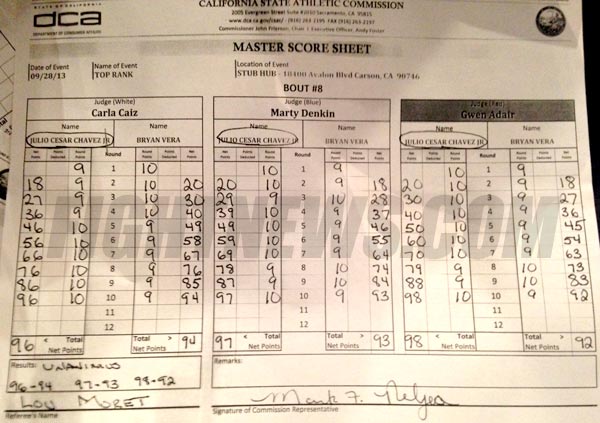 CALIFORNIA STATE ATHLETIC COMMISSION
dca
STATE OF CALIFORNIA
DEPARTMENT OF CONSUMER AFFAIRS
2005 Evergreen Street Suite #2010 Sacramento, CA 95815
www.dca.ca.gov/csac/ - (916) 263-2195 FAX (916) 263-2197
Commissioner John Frierson, Chair | Executive Officer, Andy Foster
MASTER SCORE SHEET
Date of Event Name of Event Location of Event
09/28/13 TOP RANK STUB HUB - 18400 Avalon Blvd Carson, CA 90746
BOUT #8
Judge (White) Judge (Blue) Judge (Red)
Carla Caiz Marty Denkin Gwen Adair
Name Name Name Name Name Name
JULIO CESAR CHAVEZ JR BRYAN VERA JULIO CESAR CHAVEZ JR BRYAN VERA JULIO CESAR CHAVEZ JR BRYAN VERA
Net Points Points Deducted Points Round Points Points Deducted Net Points Net Points Points Deducted Points Round Points Points Deducted Net Points Net Points Points Deducted Points Round Points Points Deducted Net Points
9 1 10 10 1 9 10 1 9
18 9 2 10 20 20 10 2 9 18 20 10 2 9 18
27 9 3 10 30 29 9 3 10 28 30 10 3 9 27
36 9 4 10 40 39 10 4 9 37 40 10 4 9 36
46 10 5 9 49 49 10 5 9 46 50 10 5 9 45
56 10 6 9 58 59 10 6 9 55 60 10 6 9 54
66 10 7 9 67 69 10 7 9 64 70 10 7 9 63
76 10 8 9 76 78 9 8 10 74 79 9 8 10 73
86 10 9 9 85 87 9 9 10 84 88 9 9 10 83
96 10 10 9 94 97 10 10 9 93 98 10 10 9 92
11 11 11
12 12 12
96 < Total > 94 97 < Total > 93 98 < Total > 92
Net Points Net Points Net Points
FIGHTNEWS.COM
Results: UNANIMUS
96-94 97-93 98-92
LOU MORET
Referee's Name
Remarks:
Signature of Commission Representative